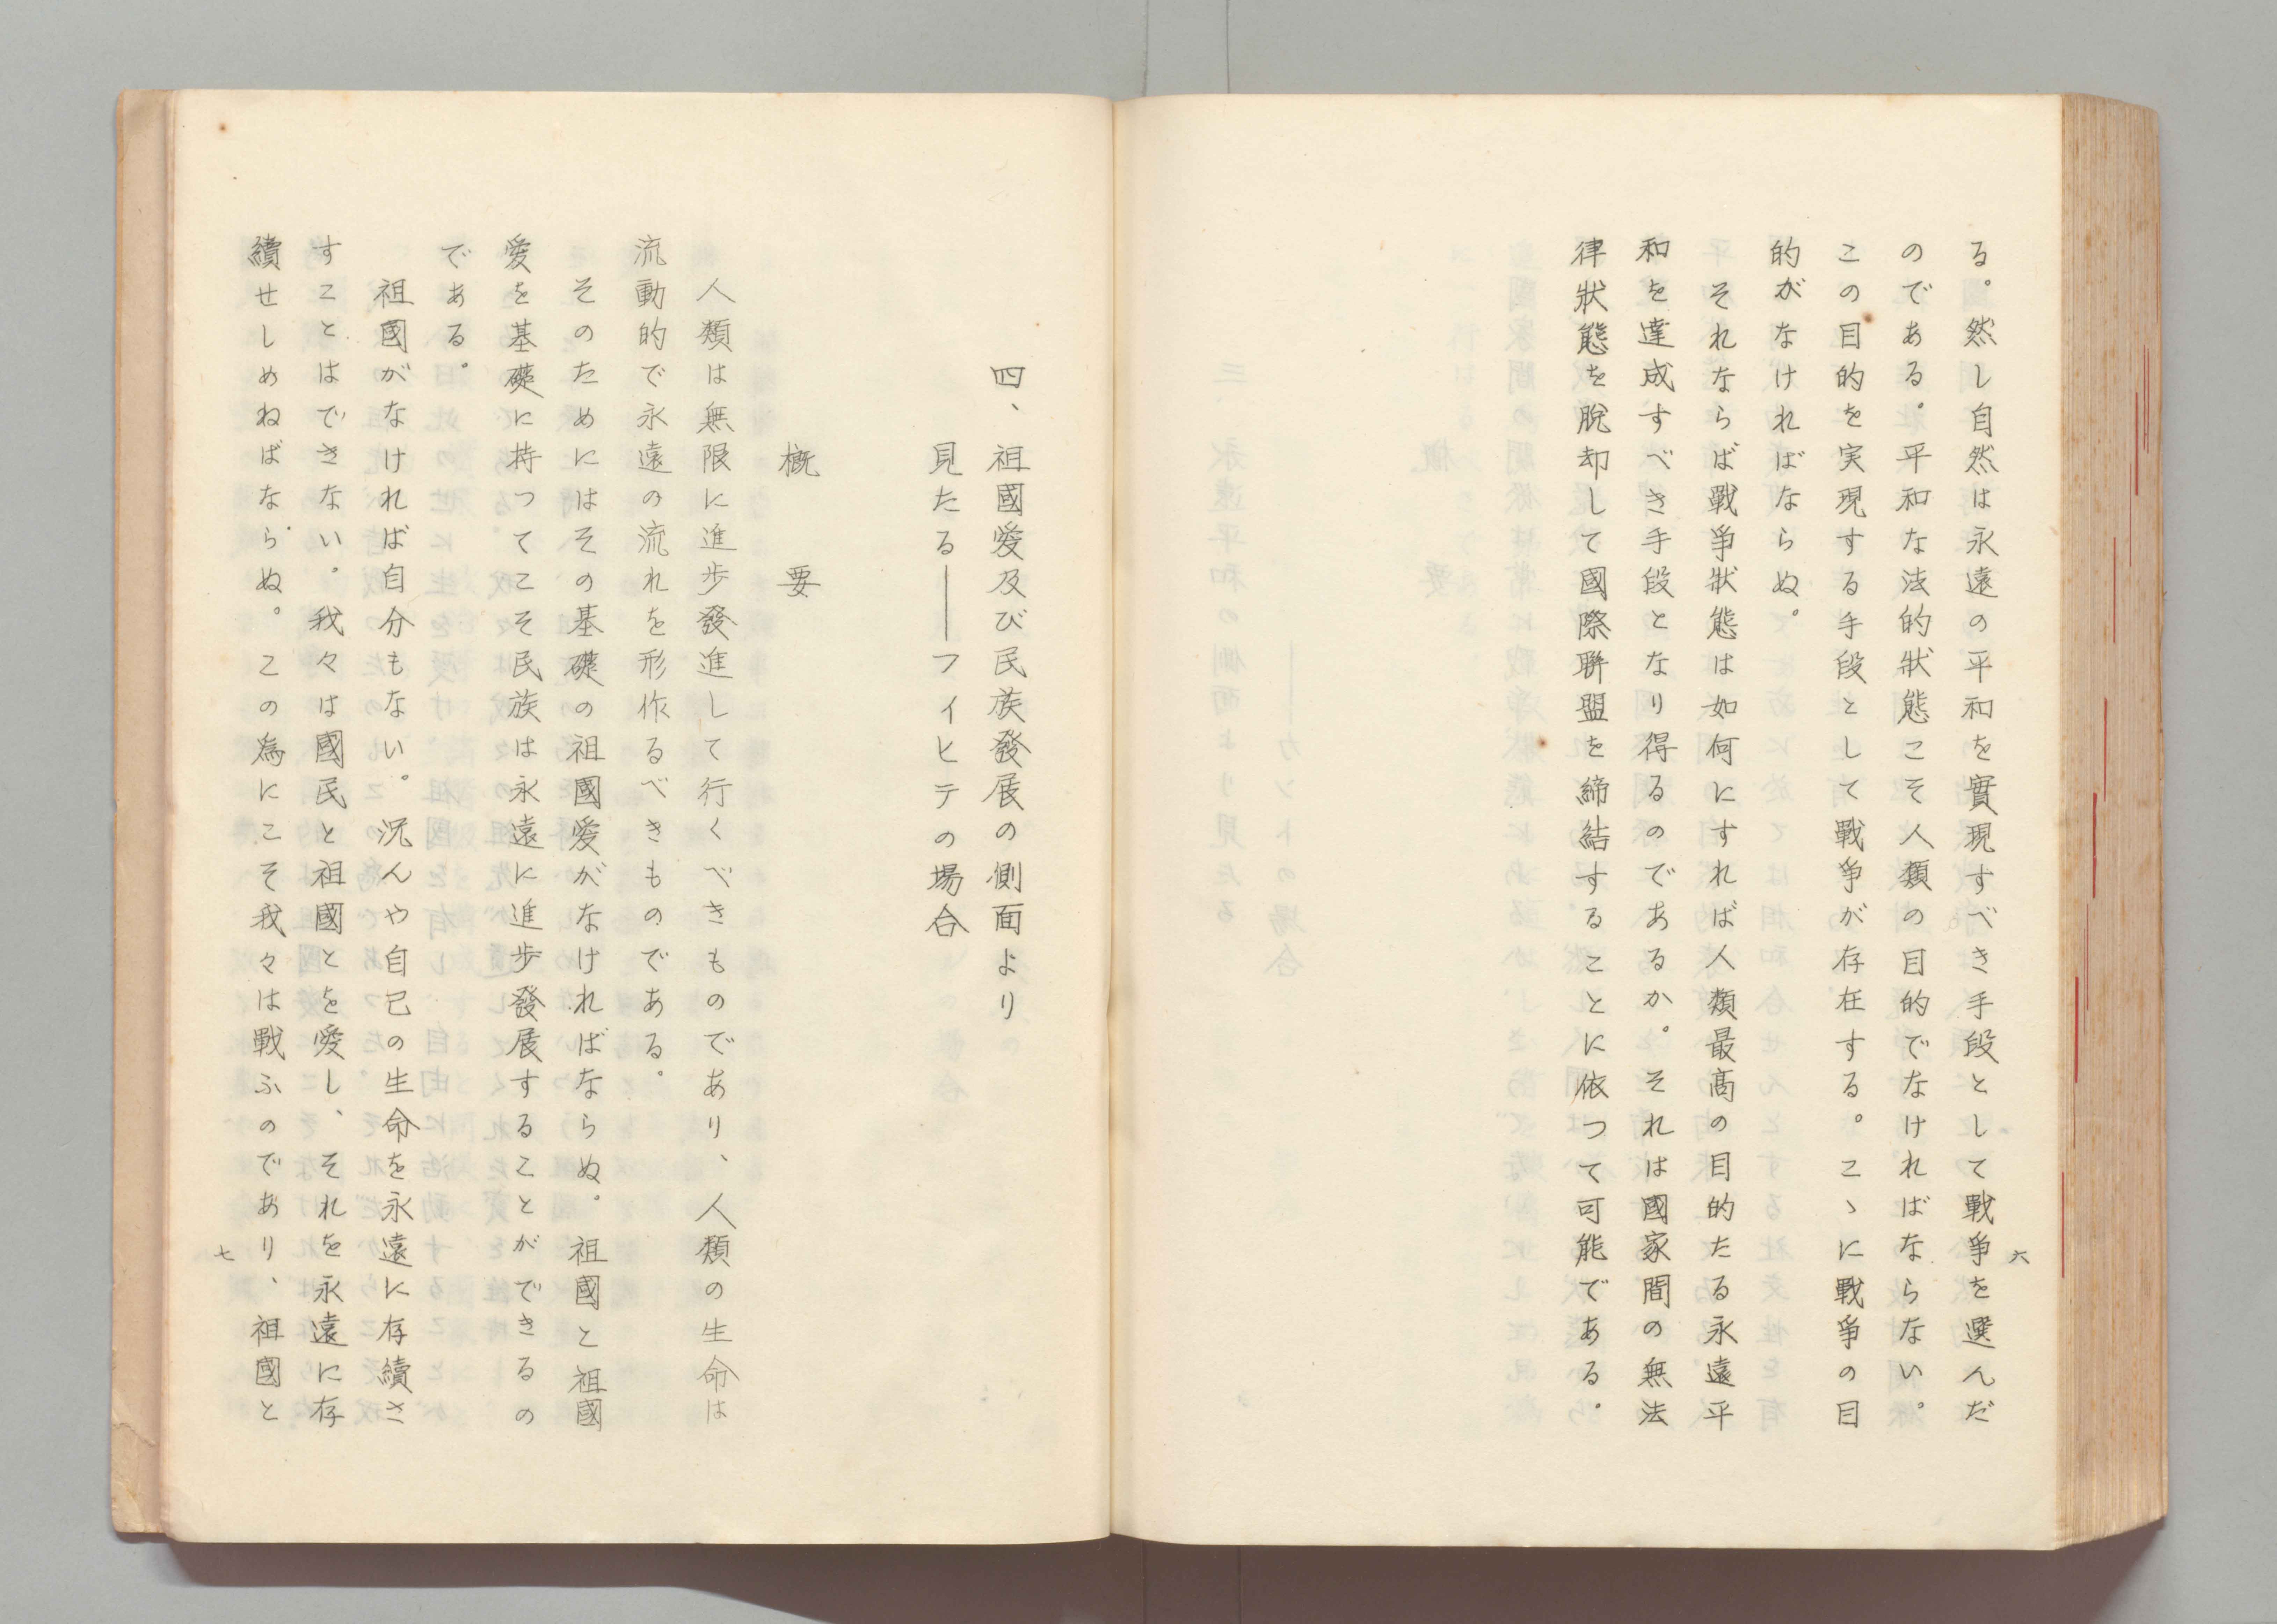 る。然し自然は永遠の平和を實現すべき手段として戰爭を選んだ
のである。平和な法的狀態こそ人類の目的でなければならない。
この目的を実現する手段として戰爭が存在する。こゝに戰爭の目
的がなければならぬ。
それならば戰爭狀態は如何にすれば人類最高の目的たる永遠平
和を達成すべき手段となり得るのであるか。それは國家間の無法
律狀態を脫却して國際聯盟を締結することに依つて可能である。
六
四、祖國愛及び民族發展の側面より
見たる――フイヒテの場合
概要
人類は無限に進歩發進して行くべきものであり、人類の生命は
流動的で永遠の流れを形作るべきものである。
そのためにはその基礎の祖國愛がなければならぬ。祖國と祖國
愛を基礎に持つてこそ民族は永遠に進歩發展することができるの
である。
祖國がなければ自分もない。況んや自己の生命を永遠に存續さ
すことはできない。我々は國民と祖國とを愛し、それを永遠に存
續せしめねばならぬ。この為にこそ我々は戰ふのであり、祖國と
七